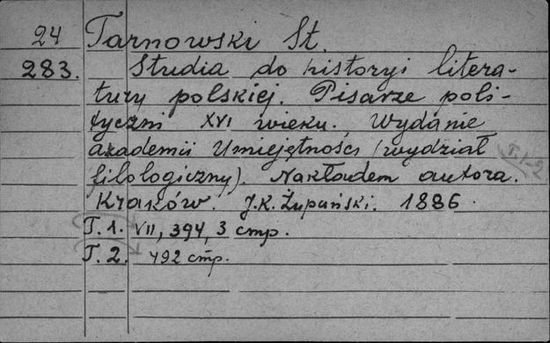 24 Tarnowski St.
283. Studia do historyi litera-
tury polskiej. Pisarze poli-
tyczni XVI wieku. Wydanie
akademii Umiejętności (wydział
filologiczny). Nakładem autora.
T. 1-2
Kraków. J.K. Żupański. 1886.
T. 1. VII, 394, 3 стр.
T. 2. 492 стр.